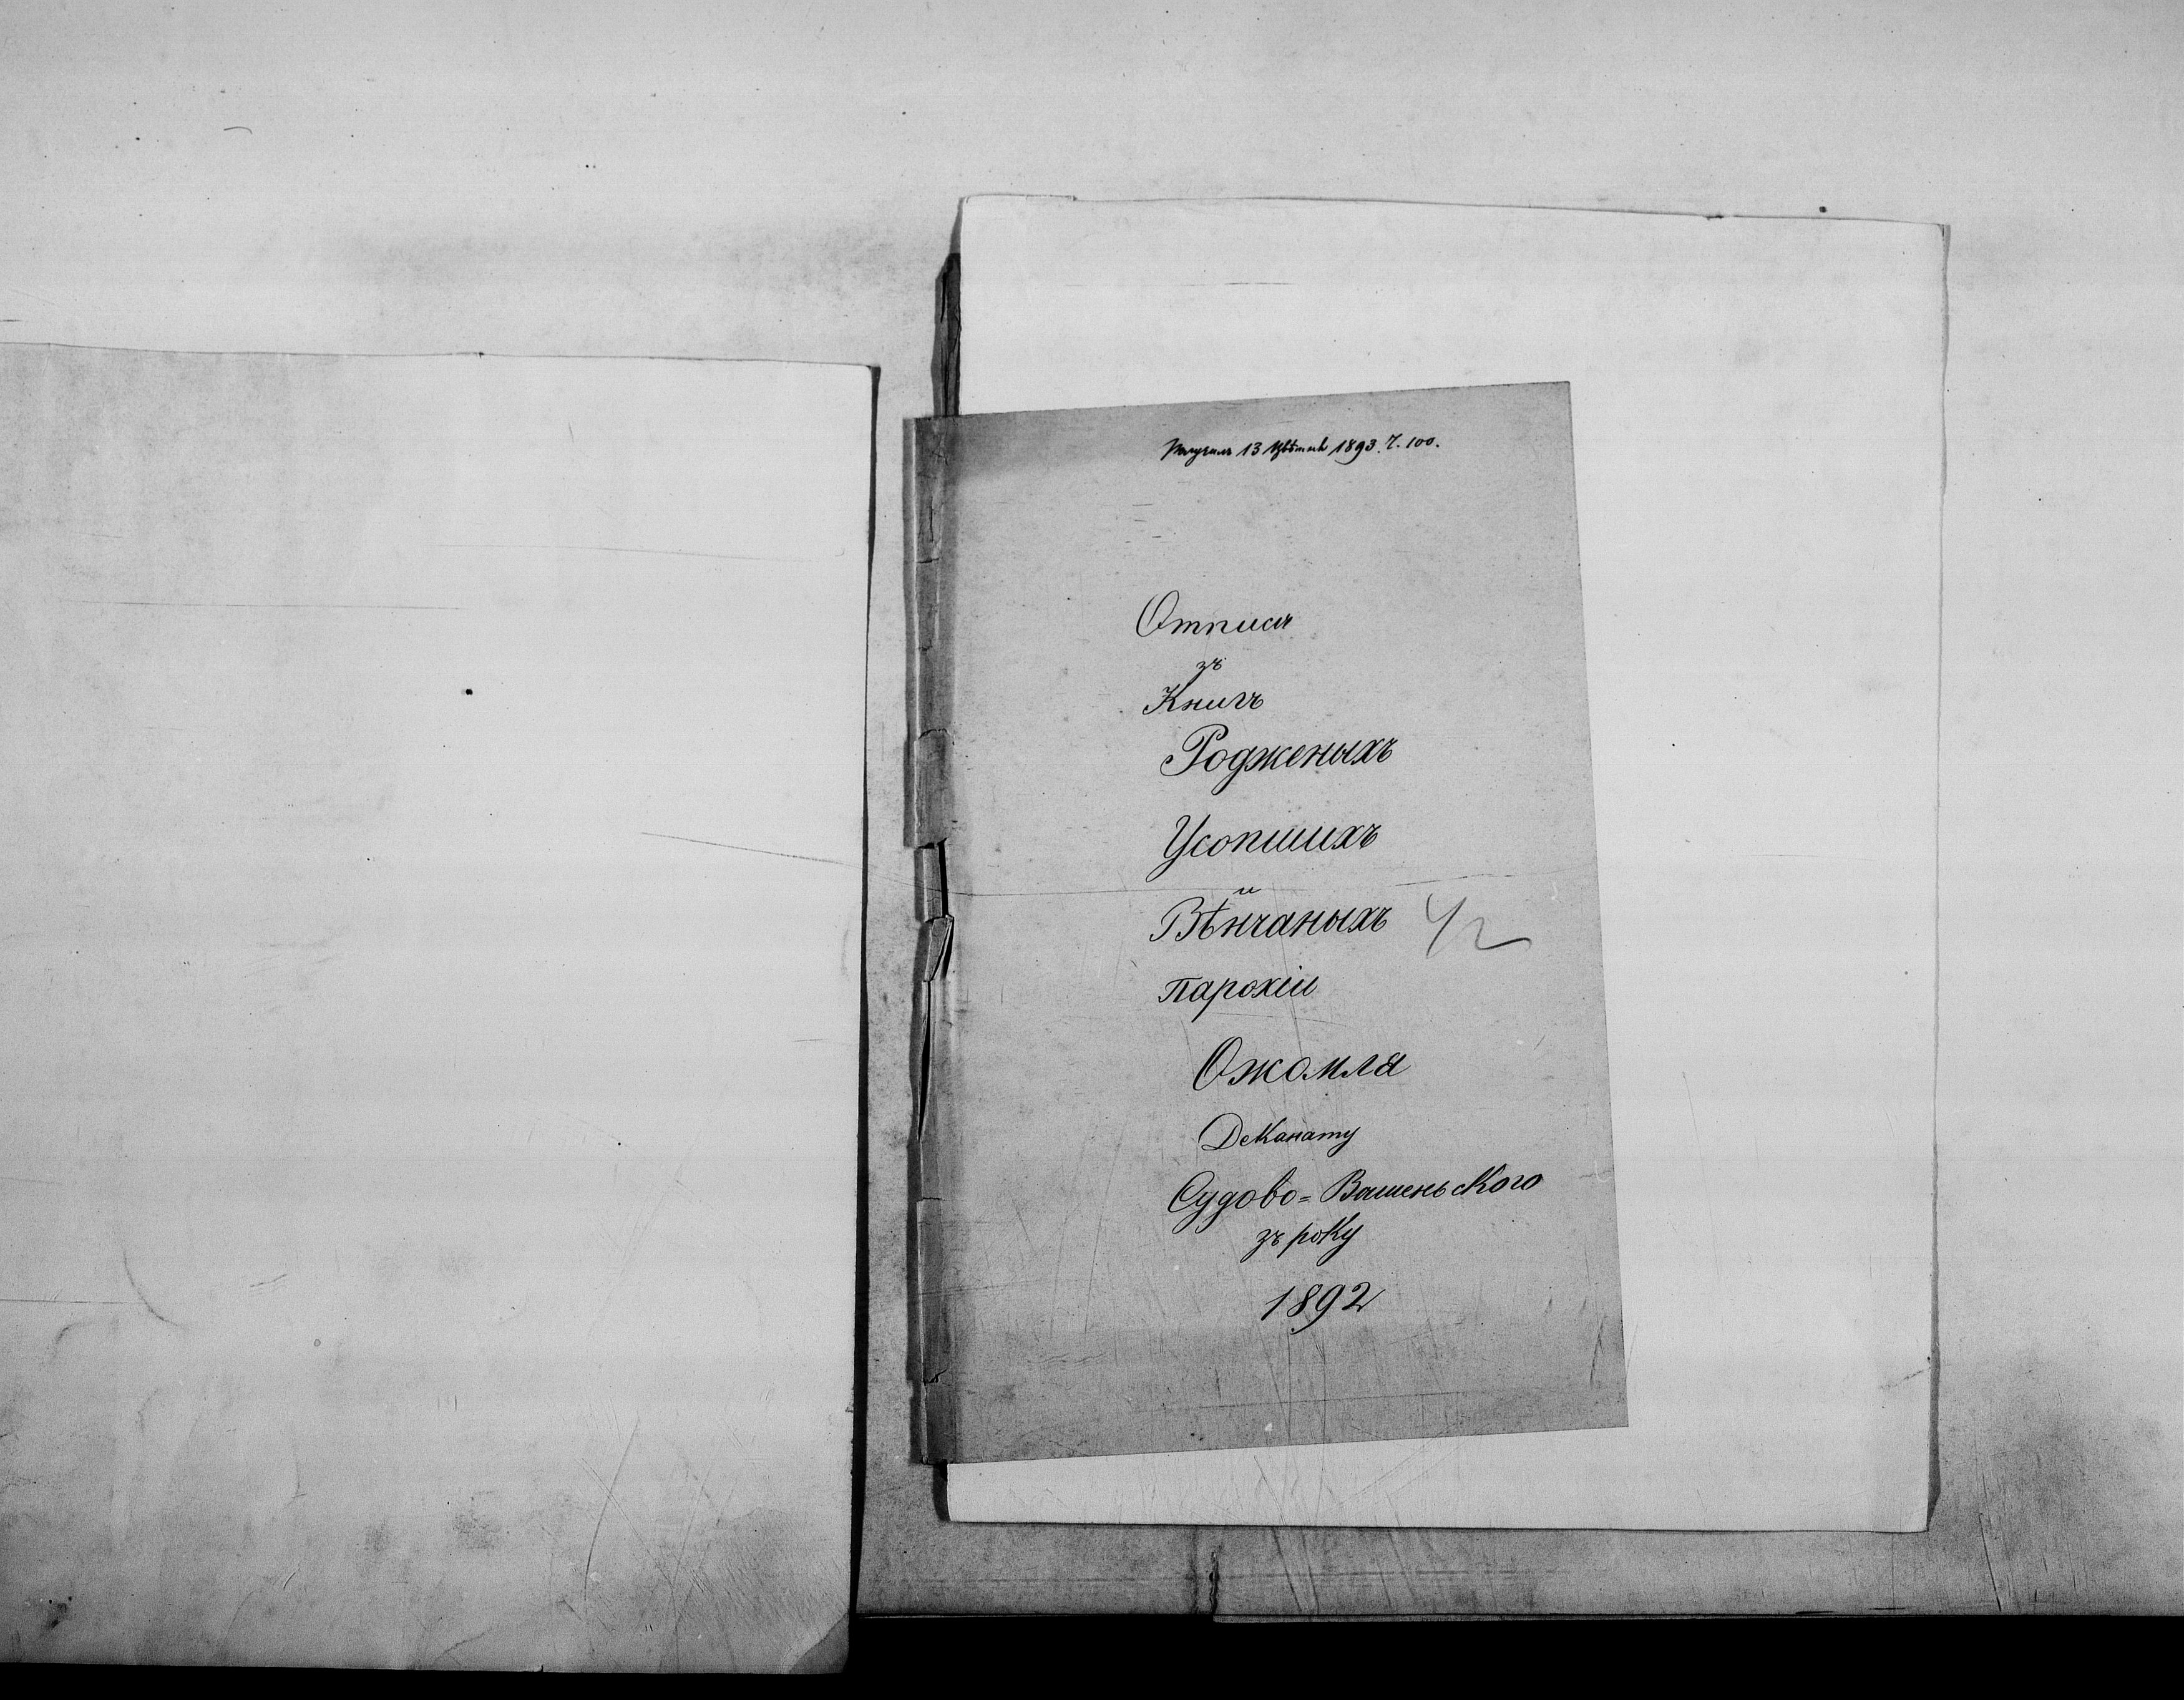 13 Цвѣтня 1893. Ч. 100.
Отписъ
зъ
Книгъ
Родженыхъ
Усопшихъ
и
Вѣнчаныхъ
парохіи
Ожомля
Деканату
Судово=Вашеньского
зъ року
1892